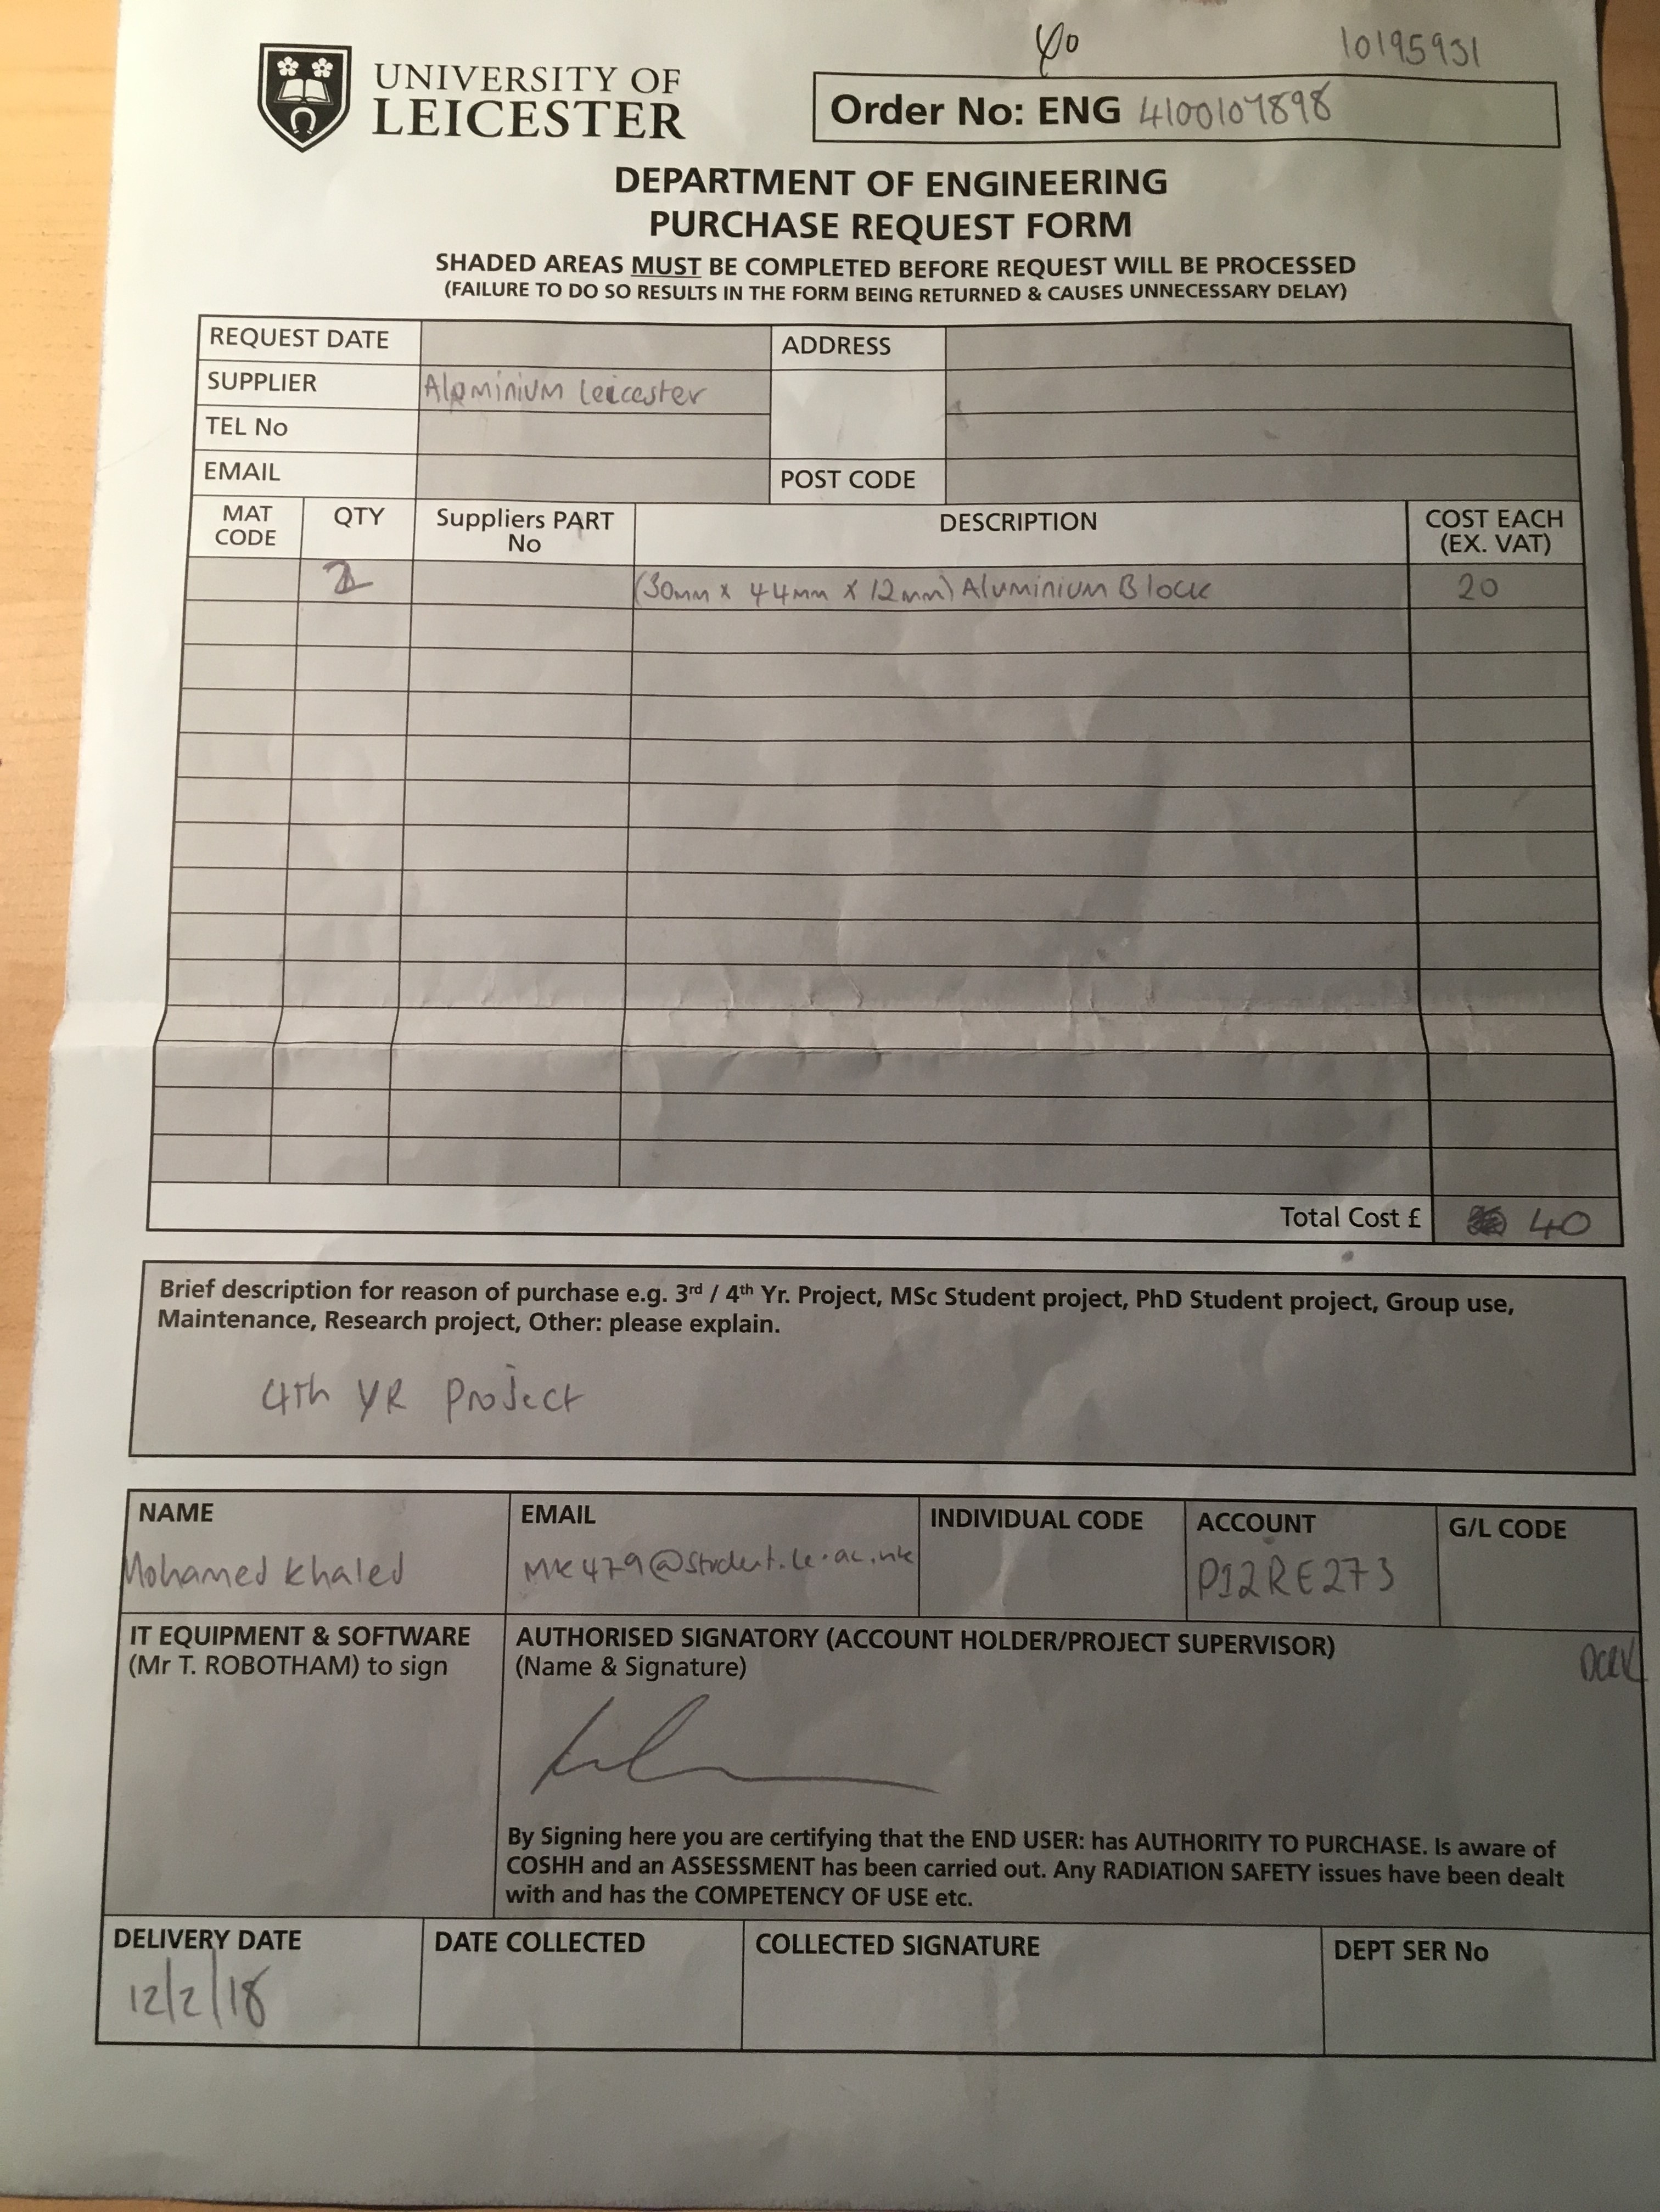 10195931
UNIVERSITY OF
LEICESTER
Order No: ENG 4100107898
DEPARTMENT OF ENGINEERING
PURCHASE REQUEST FORM
SHADED AREAS MUST BE COMPLETED BEFORE REQUEST WILL BE PROCESSED
(FAILURE TO DO SO RESULTS IN THE FORM BEING RETURNED & CAUSES UNNECESSARY DELAY)
REQUEST DATE ADDRESS
SUPPLIER Aluminium Leicester
TEL No
EMAIL POST CODE
MAT CODE QTY Suppliers PART No DESCRIPTION COST EACH (EX. VAT)
2 (30mm x 44mm x 12mm) Aluminium Block 20
Total Cost £ 40
Brief description for reason of purchase e.g. 3rd / 4th Yr. Project, MSc Student project, PhD Student project, Group use,
Maintenance, Research project, Other: please explain.
4th YR Project
NAME EMAIL INDIVIDUAL CODE ACCOUNT G/L CODE
Mohamed Khaled mk479@student.le.ac.uk P12RE273
IT EQUIPMENT & SOFTWARE
(Mr T. ROBOTHAM) to sign
AUTHORISED SIGNATORY (ACCOUNT HOLDER/PROJECT SUPERVISOR)
(Name & Signature)
By Signing here you are certifying that the END USER: has AUTHORITY TO PURCHASE. Is aware of
COSHH and an ASSESSMENT has been carried out. Any RADIATION SAFETY issues have been dealt
with and has the COMPETENCY OF USE etc.
DELIVERY DATE DATE COLLECTED COLLECTED SIGNATURE DEPT SER No
12/2/18